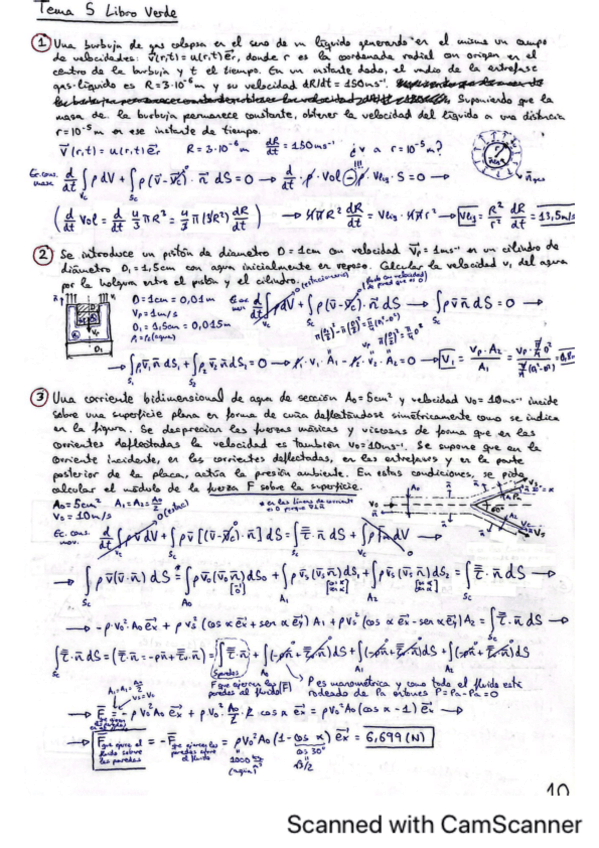 Tema 5 Libro Verde
① Una burbuja de gas colapsa en el seno de un líquido generando en el mismo un campo
de velocidades: v̄(r,t) = u(r,t) ēr, donde r es la coordenada radial con origen en el
centro de la burbuja y t el tiempo. En un instante dado, el radio de la entrefase
gas-líquido es R=3·10⁻⁶ m y su velocidad dR/dt = 150ms⁻¹. Suponiendo que la
masa de la burbuja permanece constante, obtener la velocidad del líquido a una distancia
r=10⁻⁵ m en ese instante de tiempo.
v̄(r,t) = u(r,t) ēr R = 3·10⁻⁶ m dR/dt = 150ms⁻¹ ¿v a r=10⁻⁵ m?
Ec. cons. masa d/dt ∫ρ dV + ∫ρ (v̄-v̄c)·n̄ dS = 0 → d/dt ρ·Vol − ρ·Vliq·S = 0 →
(d/dt Vol = d/dt 4/3 πR³ = 4/3 π(3R²) dR/dt) → 4πR² dR/dt = Vliq·4πr² → Vliq = R²/r² dR/dt = 13,5m/s
② Se introduce un pistón de diámetro D=1cm con velocidad v̄p = 1ms⁻¹ en un cilindro de
diámetro D₁ = 1,5cm con agua inicialmente en reposo. Calcular la velocidad v₁ del agua
por la holgura entre el pistón y el cilindro.
D=1cm = 0,01m
Vp=1m/s
D₁ = 1,5cm = 0,015m
d/dt ∫ρ dV + ∫ρ (v̄-v̄c)·n̄ dS → ∫ρ v̄ n̄ dS = 0 →
→ ∫ρ v̄₁ n̄ dS₁ + ∫ρ v̄₂ n̄ dS₂ = 0 → ρ·v₁·A₁ − ρ·v₂·A₂ = 0 → V₁ = Vp·A₂/A₁
③ Una corriente bidimensional de agua de sección A₀=5cm² y velocidad V₀=10ms⁻¹ incide
sobre una superficie plana en forma de cuña deflectándose simétricamente como se indica
en la figura. Se desprecian las fuerzas másicas y viscosas de forma que en las
corrientes deflectadas la velocidad es también V₀=10ms⁻¹. Se supone que en la
corriente incidente, en las corrientes deflectadas, en las entrefases y en la parte
posterior de la placa, actúa la presión ambiente. En estas condiciones, se pide
calcular el módulo de la fuerza F sobre la superficie.
A₀=5cm² A₁=A₂=A₀/2
V₀=10m/s
* en las líneas de corriente es 0 porque v̄⊥n̄
60°
Ec. cons. mov. d/dt ∫ρ v̄ dV + ∫ρ v̄ [(v̄-v̄c)·n̄] dS = ∫τ̄·n̄ dS + ∫ρ f̄m dV →
→ ∫ρ v̄(v̄·n̄) dS = ∫ρ v̄₀ (v̄₀ n̄) dS₀ + ∫ρ v̄s (v̄s n̄) dS₁ + ∫ρ v̄s (v̄s n̄) dS₂ = ∫τ̄·n̄ dS →
→ −ρ·V₀²·A₀ ēx + ρVs² (cos α ēx + sen α ēy) A₁ + ρVs² (cos α ēx − sen α ēy) A₂ = ∫τ̄·n̄ dS →
∫τ̄·n̄ dS = (τ̄·n̄ = −pn̄ + τ̄v·n̄) = ∫τ̄·n̄ + ∫(−pn̄ + τ̄v·n̄) dS + ∫(−pn̄ + τ̄v·n̄) dS + ∫(−pn̄ + τ̄v·n̄) dS
F que ejercen las paredes al fluido (F̄)
P es manométrica y como todo el fluido está
rodeado de Pa entonces P = Pa−Pa = 0
→ F̄ = −ρV₀²A₀ ēx + ρV₀²·A₀/2·2 cos α ēx = ρV₀²A₀ (cos α − 1) ēx →
→ F̄ que ejerce el fluido sobre las paredes = −F̄ que ejercen las paredes sobre el fluido = ρV₀²A₀ (1 − cos α) ēx = 6,699 (N)
1000 (agua) cos 30° √3/2
10
Scanned with CamScanner